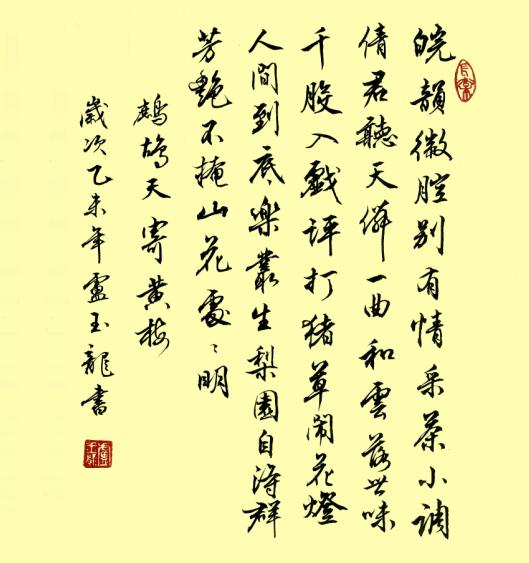 皖韻徽腔別有情采茶小調
倩君聽天一曲和雲落世味
千般入戲評打猪草鬧花燈
人間到底樂叢生梨園自得群
芳艷不掩山花處〻明
鷓鴣天寄黃梅
歲次乙未年盧玉龍書